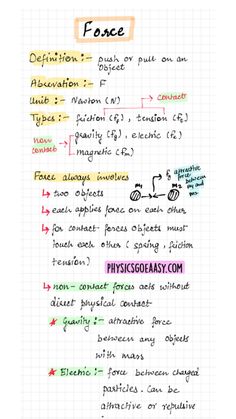 Force
Definition :- push or pull on an
object
Abbreviation :- F
Unit :- Newton (N)
contact
Types :- friction (Ff), tension (FT)
non
contact
gravity (Fg), electric (Fe)
magnetic (Fm)
Force always involves
↳ two objects
M1 M2
Fg attractive
force
between
M1 and
M2
↳ each applies force on each other
↳ for contact forces objects must
touch each other (spring, friction
tension)
PHYSICSGOEASY.COM
↳ non-contact forces acts without
direct physical contact
★ Gravity :- attractive force
between any objects
with mass
★ Electric :- force between charged
particles. Can be
attractive or repulsive